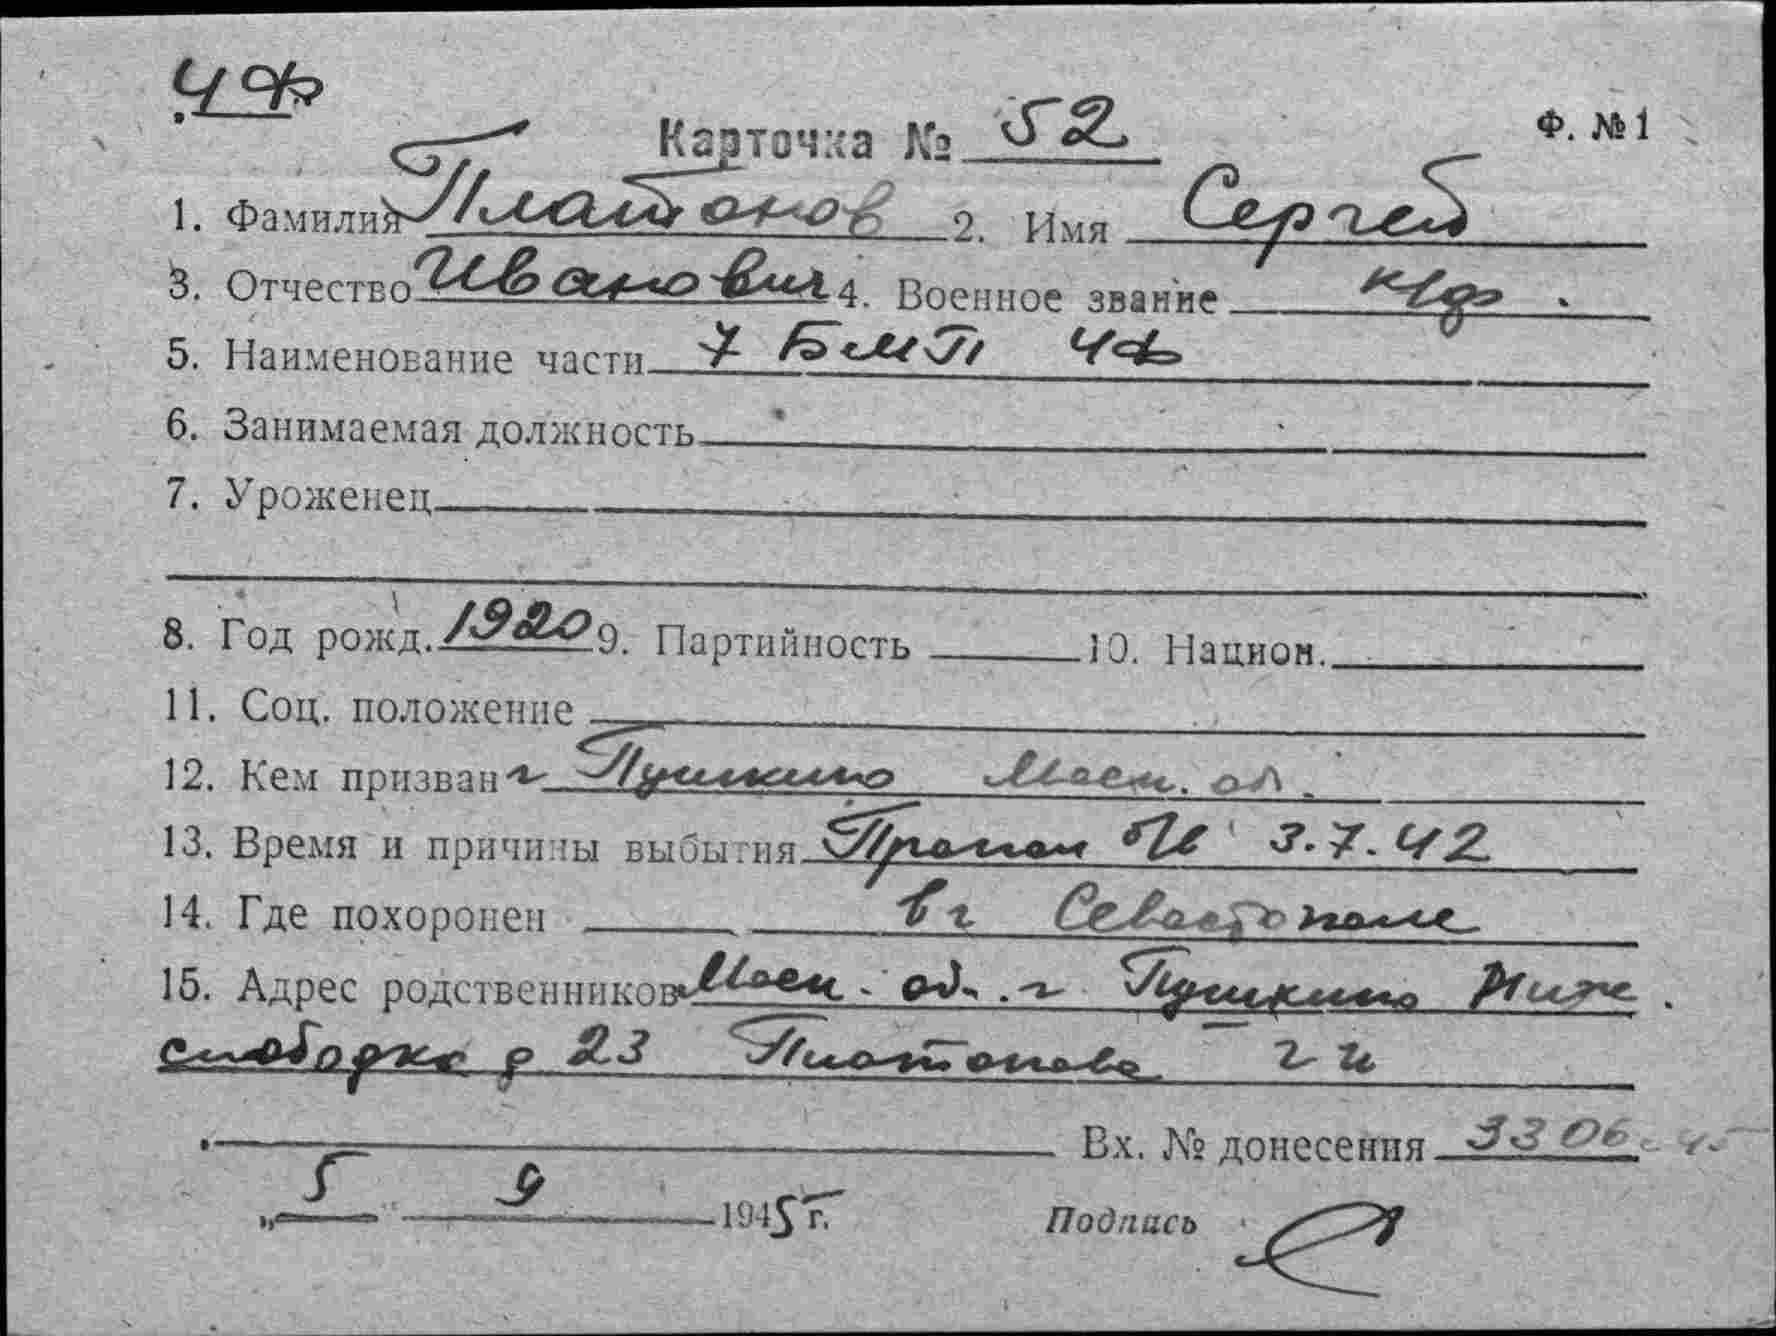 ЧФ
Карточка № 52
Ф. № 1
1. Фамилия Платонов 2. Имя Сергей
3. Отчество Иванович 4. Военное звание к/ф
5. Наименование части 7 БМП ЧФ
6. Занимаемая должность
7. Уроженец
8. Год рожд. 1920 9. Партийность 10. Национ.
11. Соц. положение
12. Кем призван г Пушкино Моск. об.
13. Время и причины выбытия Пропал 3.7.42
14. Где похоронен в г Севастополе
15. Адрес родственников Моск. об. г Пушкино Ниж.
слободка д 23 Платонова
Вх. № донесения 3306
„ 5 9 1945 г. Подпись